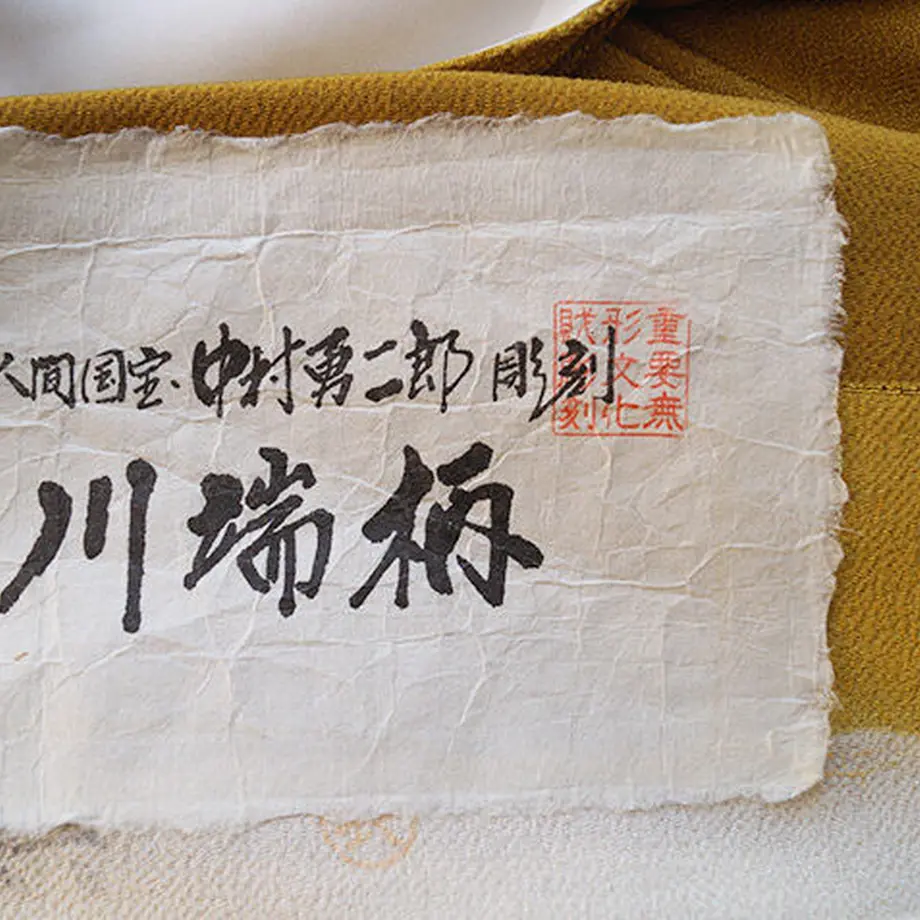 人間国宝、中村勇二郎 彫刻
川端柄
重要無
形文化
財彫刻